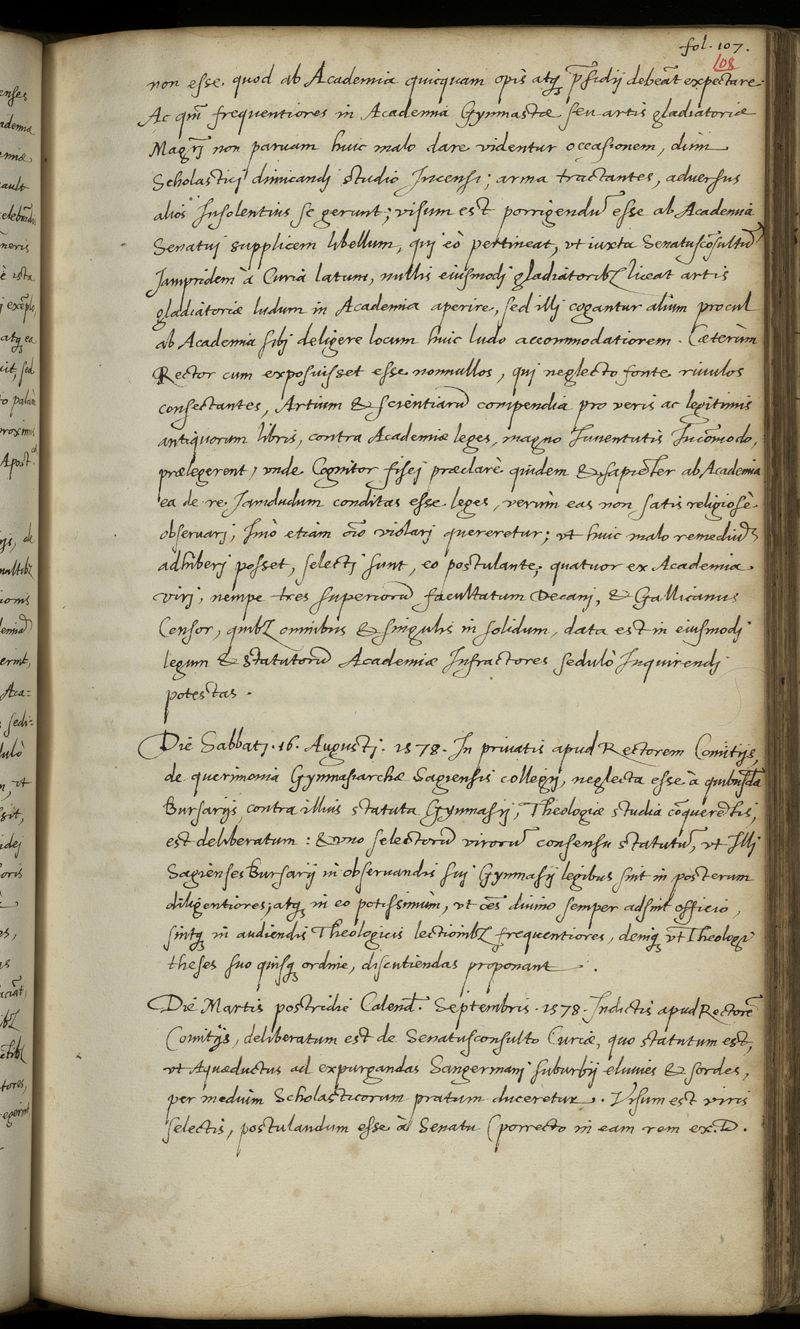 fol. 107.
108
non esse. quod ab Academia quicquam opis atq; p̄sidij debeāt expectare.
Ac qm̄ frequentiores in Academia Gymnastæ seu artis gladiatoriæ
Magr̄j non paruam huic malo dare videntur occasionem, dum
Scholasticj dimicandj studio Incensi; arma tractantes, aduersus
alios Insolentius se gerunt; visum est porrigendū esse ab Academia
Senatuj supplicem libellum, quj eò pertineat, vt iuxta Senatuscōsultū
Jampridem à Curia latum, nullis eiusmodj gladiatoribz liceat artis
gladiatoriæ ludum in Academia aperire, sed illj cogantur alium procul
ab Academia sibj deligere locum huic ludo accommodatiorem. Cæterùm
Rector cum exposuisset esse nonnullos, quj neglecto fonte riuulos
consectantes, Artium & scientiarū compendia pro veris ac legitimis
antiquorum libris, contra Academiæ leges, magno Iuuentutis Incōmodo,
prælegerent, vnde Cognitor fiscj præclarè quidem & sapiēter ab Academia
ea de re Jamdudum conditas esse leges, verùm eas non satis religiosè
obseruarj, Imò etiam oīo violarj quereretur; vt huic malo remediū
adhiberj posset, selectj sunt, eo postulante, quatuor ex Academia
virj, nempe tres superiorū facultatum Decanj, & Gallicanus
Censor, quibz omnibus & singulis in solidum, data est in eiusmodj
legum & statutorū Academiæ Infractores sedulò Inquirendj
potestas.
Die Sabbatj. 16. Augustj. 1578. In priuatis apud Rectorem Comitijs,
de querimonia Gymnasiarchæ Sagiensis collegij, neglecta esse à quibusdā
Bursarijs, contra illius statuta Gymnasij, Theologiæ studia cōquerētis,
est deliberatum: & vno selectorū virorū consensu statutū, vt Illj
Sagienses Bursarij in obseruandis suj Gymnasij legibus sint in posterum
diligentiores; atq; in eo potissimùm, vt oēs diuino semper adsint officio,
sintq; in audiendis Theologicis lectionibz frequentiores, deniq; vt Theologi
theses suo quisq; ordine, discutiendas proponant.
Die Martis postridie Calend. Septembris. 1578. Indictis apud Rectorē
Comitijs, deliberatum est de Senatusconsulto Curiæ, quo statutum est,
vt Aquæductus ad expurgandas Sangermanj suburbij eluuies & sordes,
per medium Scholasticorum pratum duceretur. Visum est viris
selectis, postulandum esse à Senatu (porrecto in eam rem ex. D.